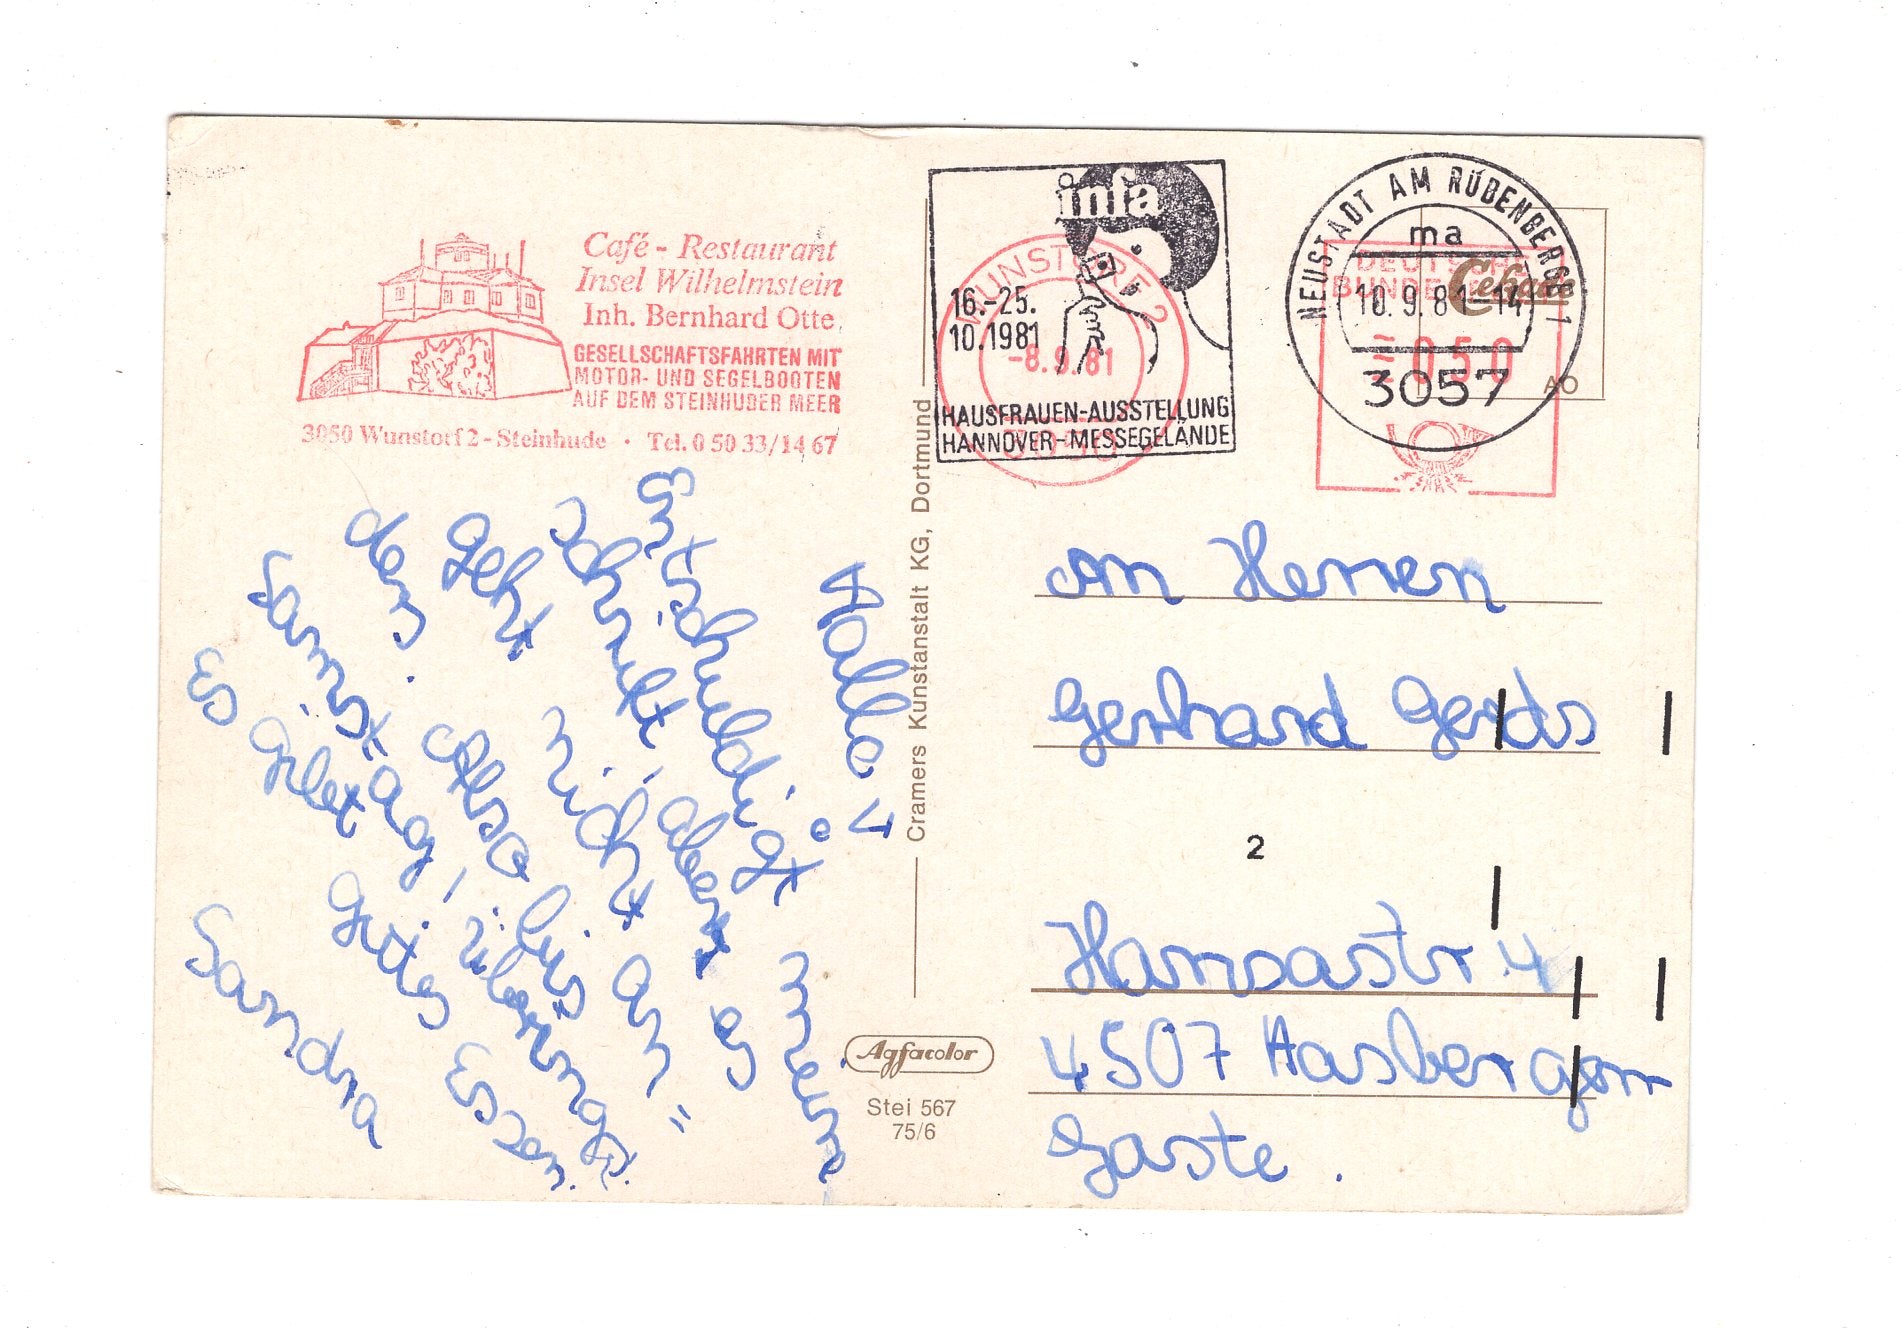 Café - Restaurant
Insel Wilhelmstein
Inh. Bernhard Otte
GESELLSCHAFTSFAHRTEN MIT
MOTOR- UND SEGELBOOTEN
AUF DEM STEINHUDER MEER
3050 Wunstorf 2 - Steinhude · Tel. 0 50 33/14 67
infa
16.-25.
10.1981
HAUSFRAUEN-AUSSTELLUNG
HANNOVER-MESSEGELÄNDE
WUNSTORF 2
-8.9.81
NEUSTADT AM RÜBENBERGE 1
ma
10.9.81-14
3057
DEUTSCHE
BUNDESPOST
050
Cekade
AO
Hallo!
Entschuldigt meine
Schrift, aber es
geht nicht an=
ders. Also bis
Samstag! übrings:
Es gibt gutes Essen.
Sandra
Cramers Kunstanstalt KG, Dortmund
Agfacolor
Stei 567
75/6
An Herren
Gerhard Gerds
2
Hansastr. 4
4507 Hasbergen
Gaste.